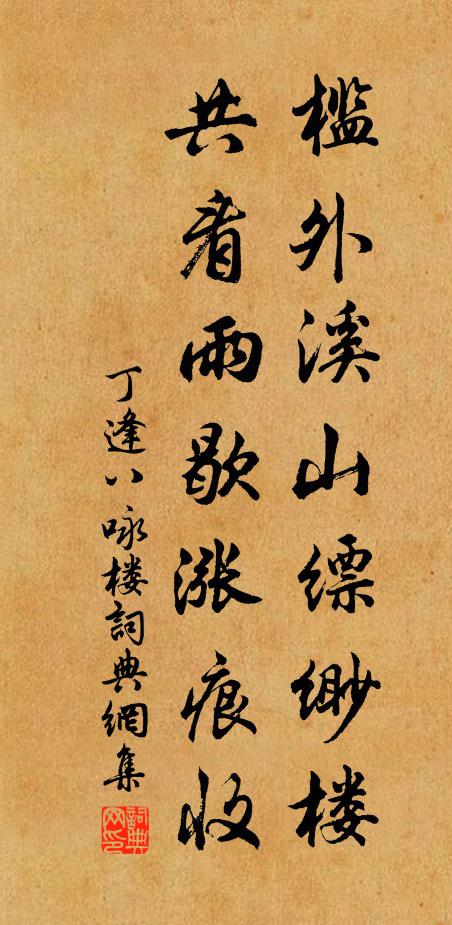 槛外溪山缥缈楼
共看雨歇涨痕收
丁逢八咏楼詞典網集
詞典网印